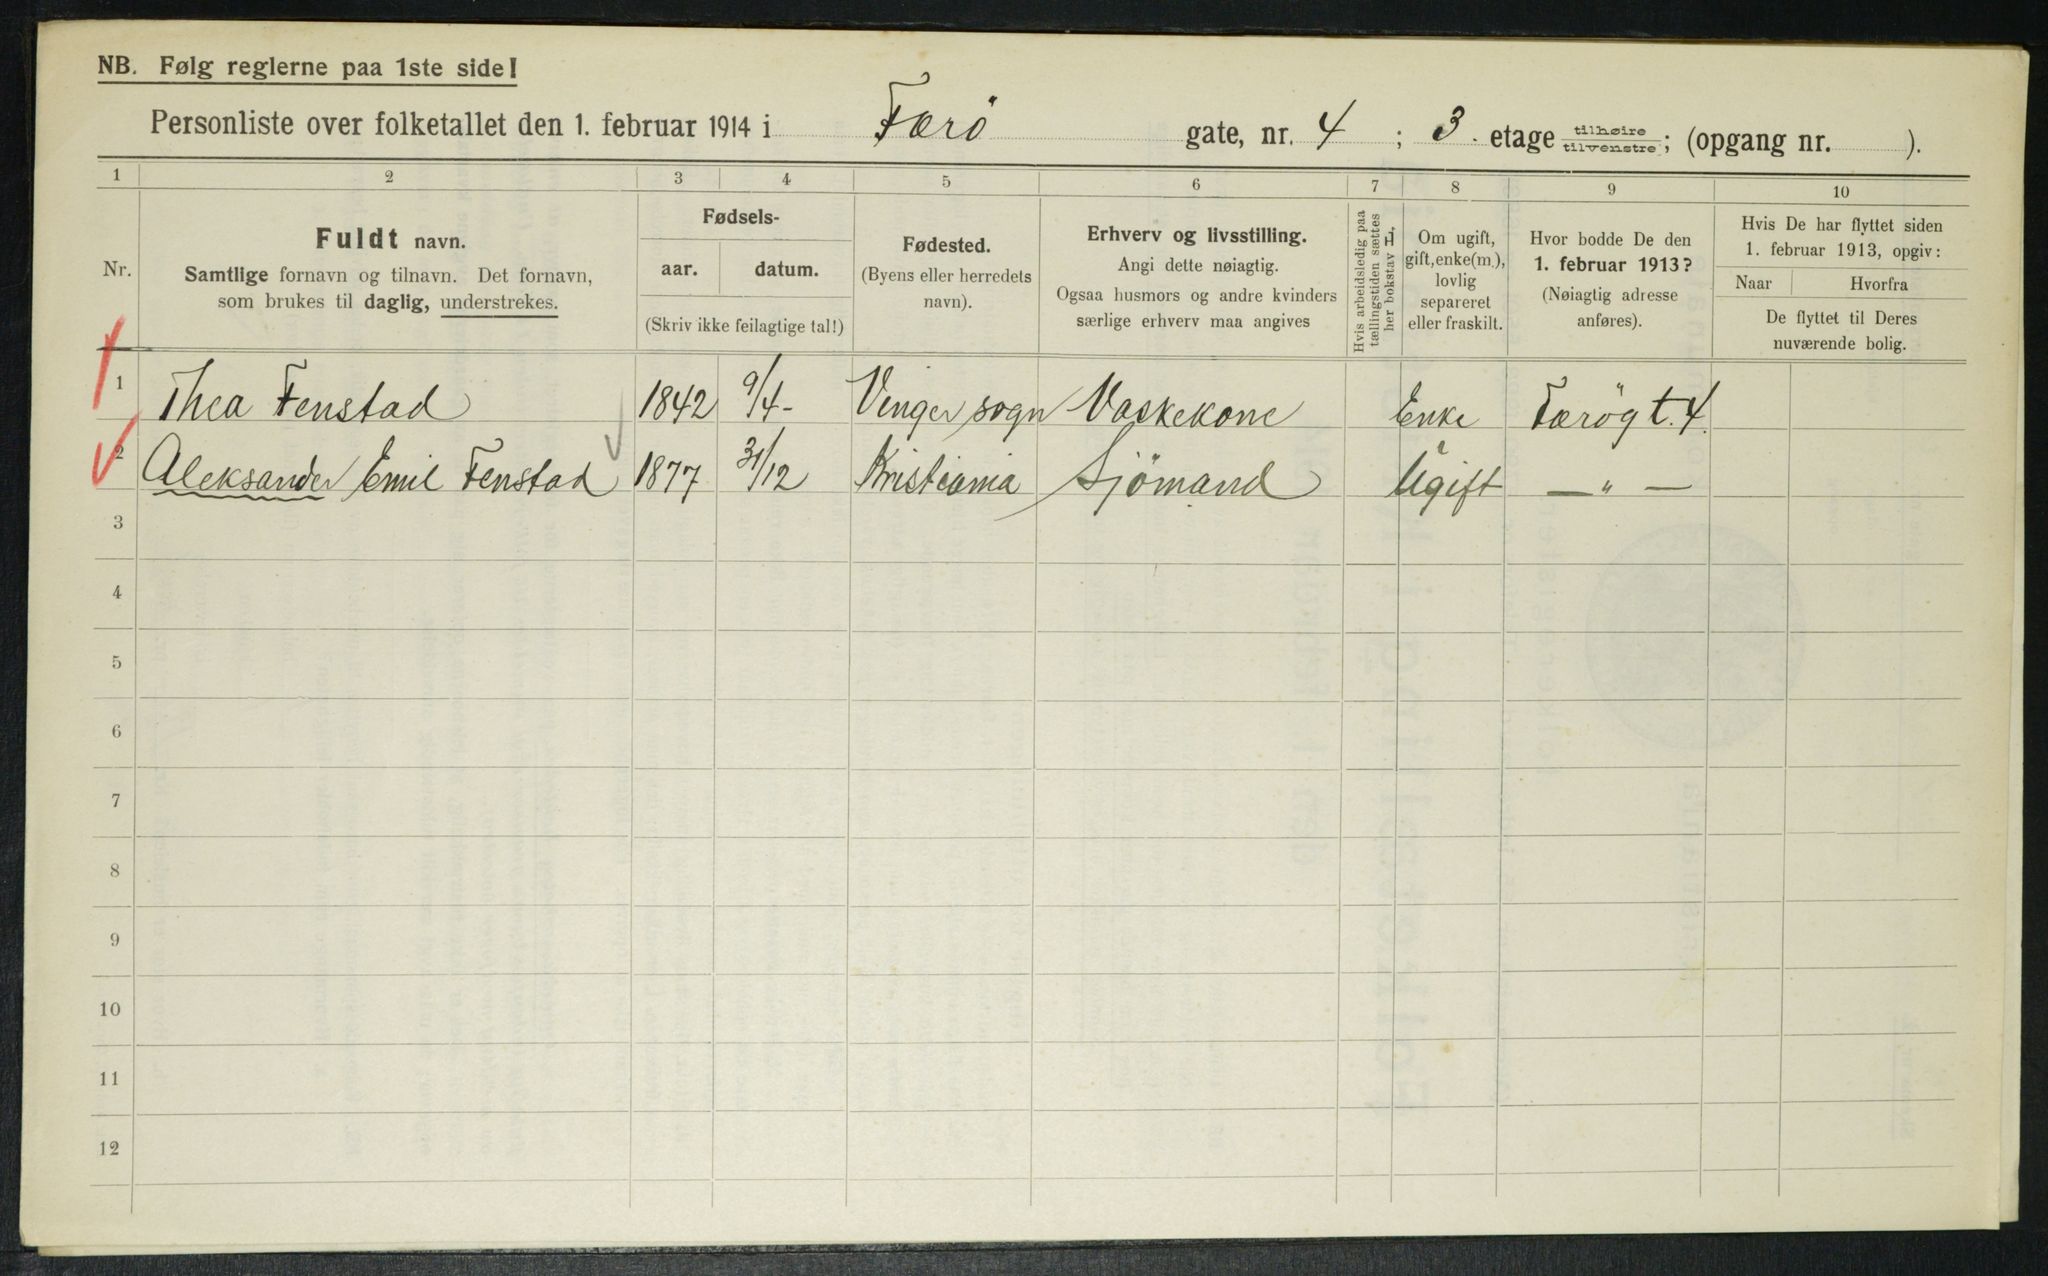 NB. Følg reglerne paa 1ste side!
Personliste over folketallet den 1. februar 1914 i Færö gate, nr. 4 ; 3. etage tilhøire tilvenstre ; (opgang nr. ).
1 2 3 4 5 6 7 8 9 10
Nr.
Fuldt navn.
Samtlige fornavn og tilnavn. Det fornavn,
som brukes til daglig, understrekes.
Fødsels-
aar. datum.
(Skriv ikke feilagtige tal!)
Fødested.
(Byens eller herredets
navn).
Erhverv og livsstilling.
Angi dette nøiagtig.
Ogsaa husmors og andre kvinders
særlige erhverv maa angives
Hvis arbeidsledig paa
tællingstiden sættes
her bokstav L.
Om ugift,
gift, enke(m.),
lovlig
separeret
eller fraskilt.
Hvor bodde De den
1. februar 1913?
(Nøiagtig adresse
anføres).
Hvis De har flyttet siden
1. februar 1913, opgiv:
Naar Hvorfra
De flyttet til Deres
nuværende bolig.
1 Thea Fenstad 1842 9/4- Vinger sogn Vaskekone Enke Færögt. 4.
2 Aleksander Emil Fenstad 1877 31/12 Kristiania Sjömand Ugift — " —
3
4
5
6
7
8
9
10
11
12